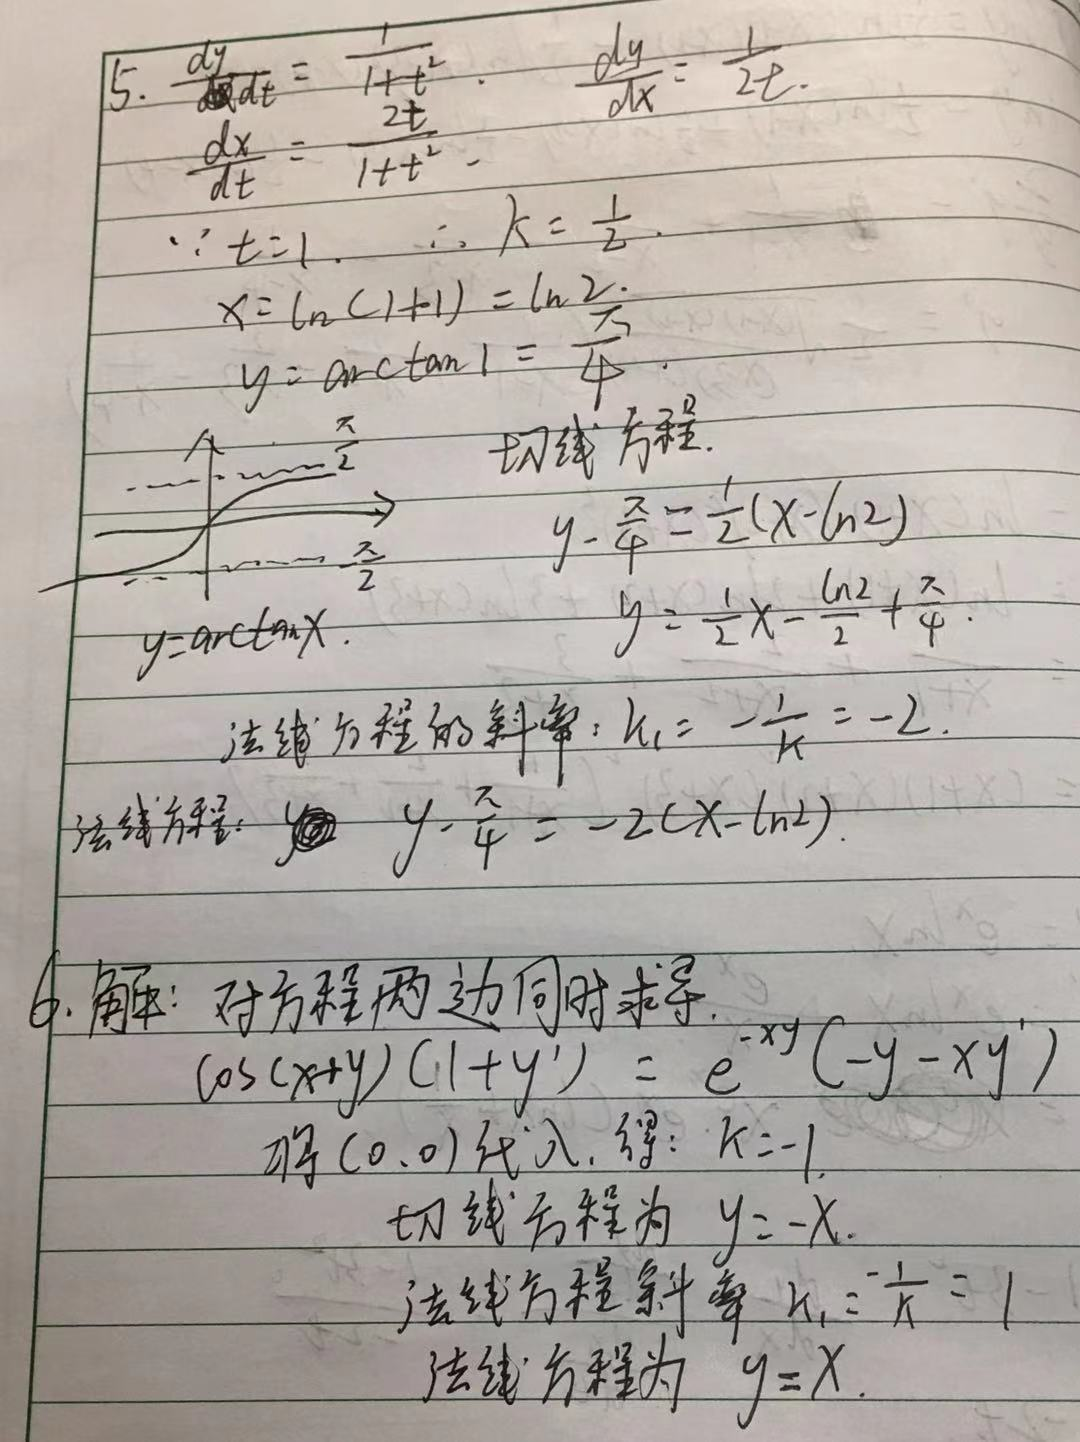 5. dy/dt = 1/(1+t²). dy/dx = 1/2t.
dx/dt = 2t/(1+t²).
∵ t=1. ∴ k=1/2.
x=ln(1+1)=ln2.
y=arctan1=π/4.
切线方程.
π/2
y-π/4=1/2(x-ln2)
-π/2
y=arctanx.
y=1/2x-ln2/2+π/4.
法线方程的斜率: k₁=-1/k=-2.
法线方程: y y-π/4=-2(x-ln2).
6.解: 对方程两边同时求导.
cos(x+y)(1+y')=e^-xy(-y-xy')
将(0.0)代入.得: k=-1.
切线方程为 y=-x.
法线方程斜率 k₁=-1/k=1
法线方程为 y=x.